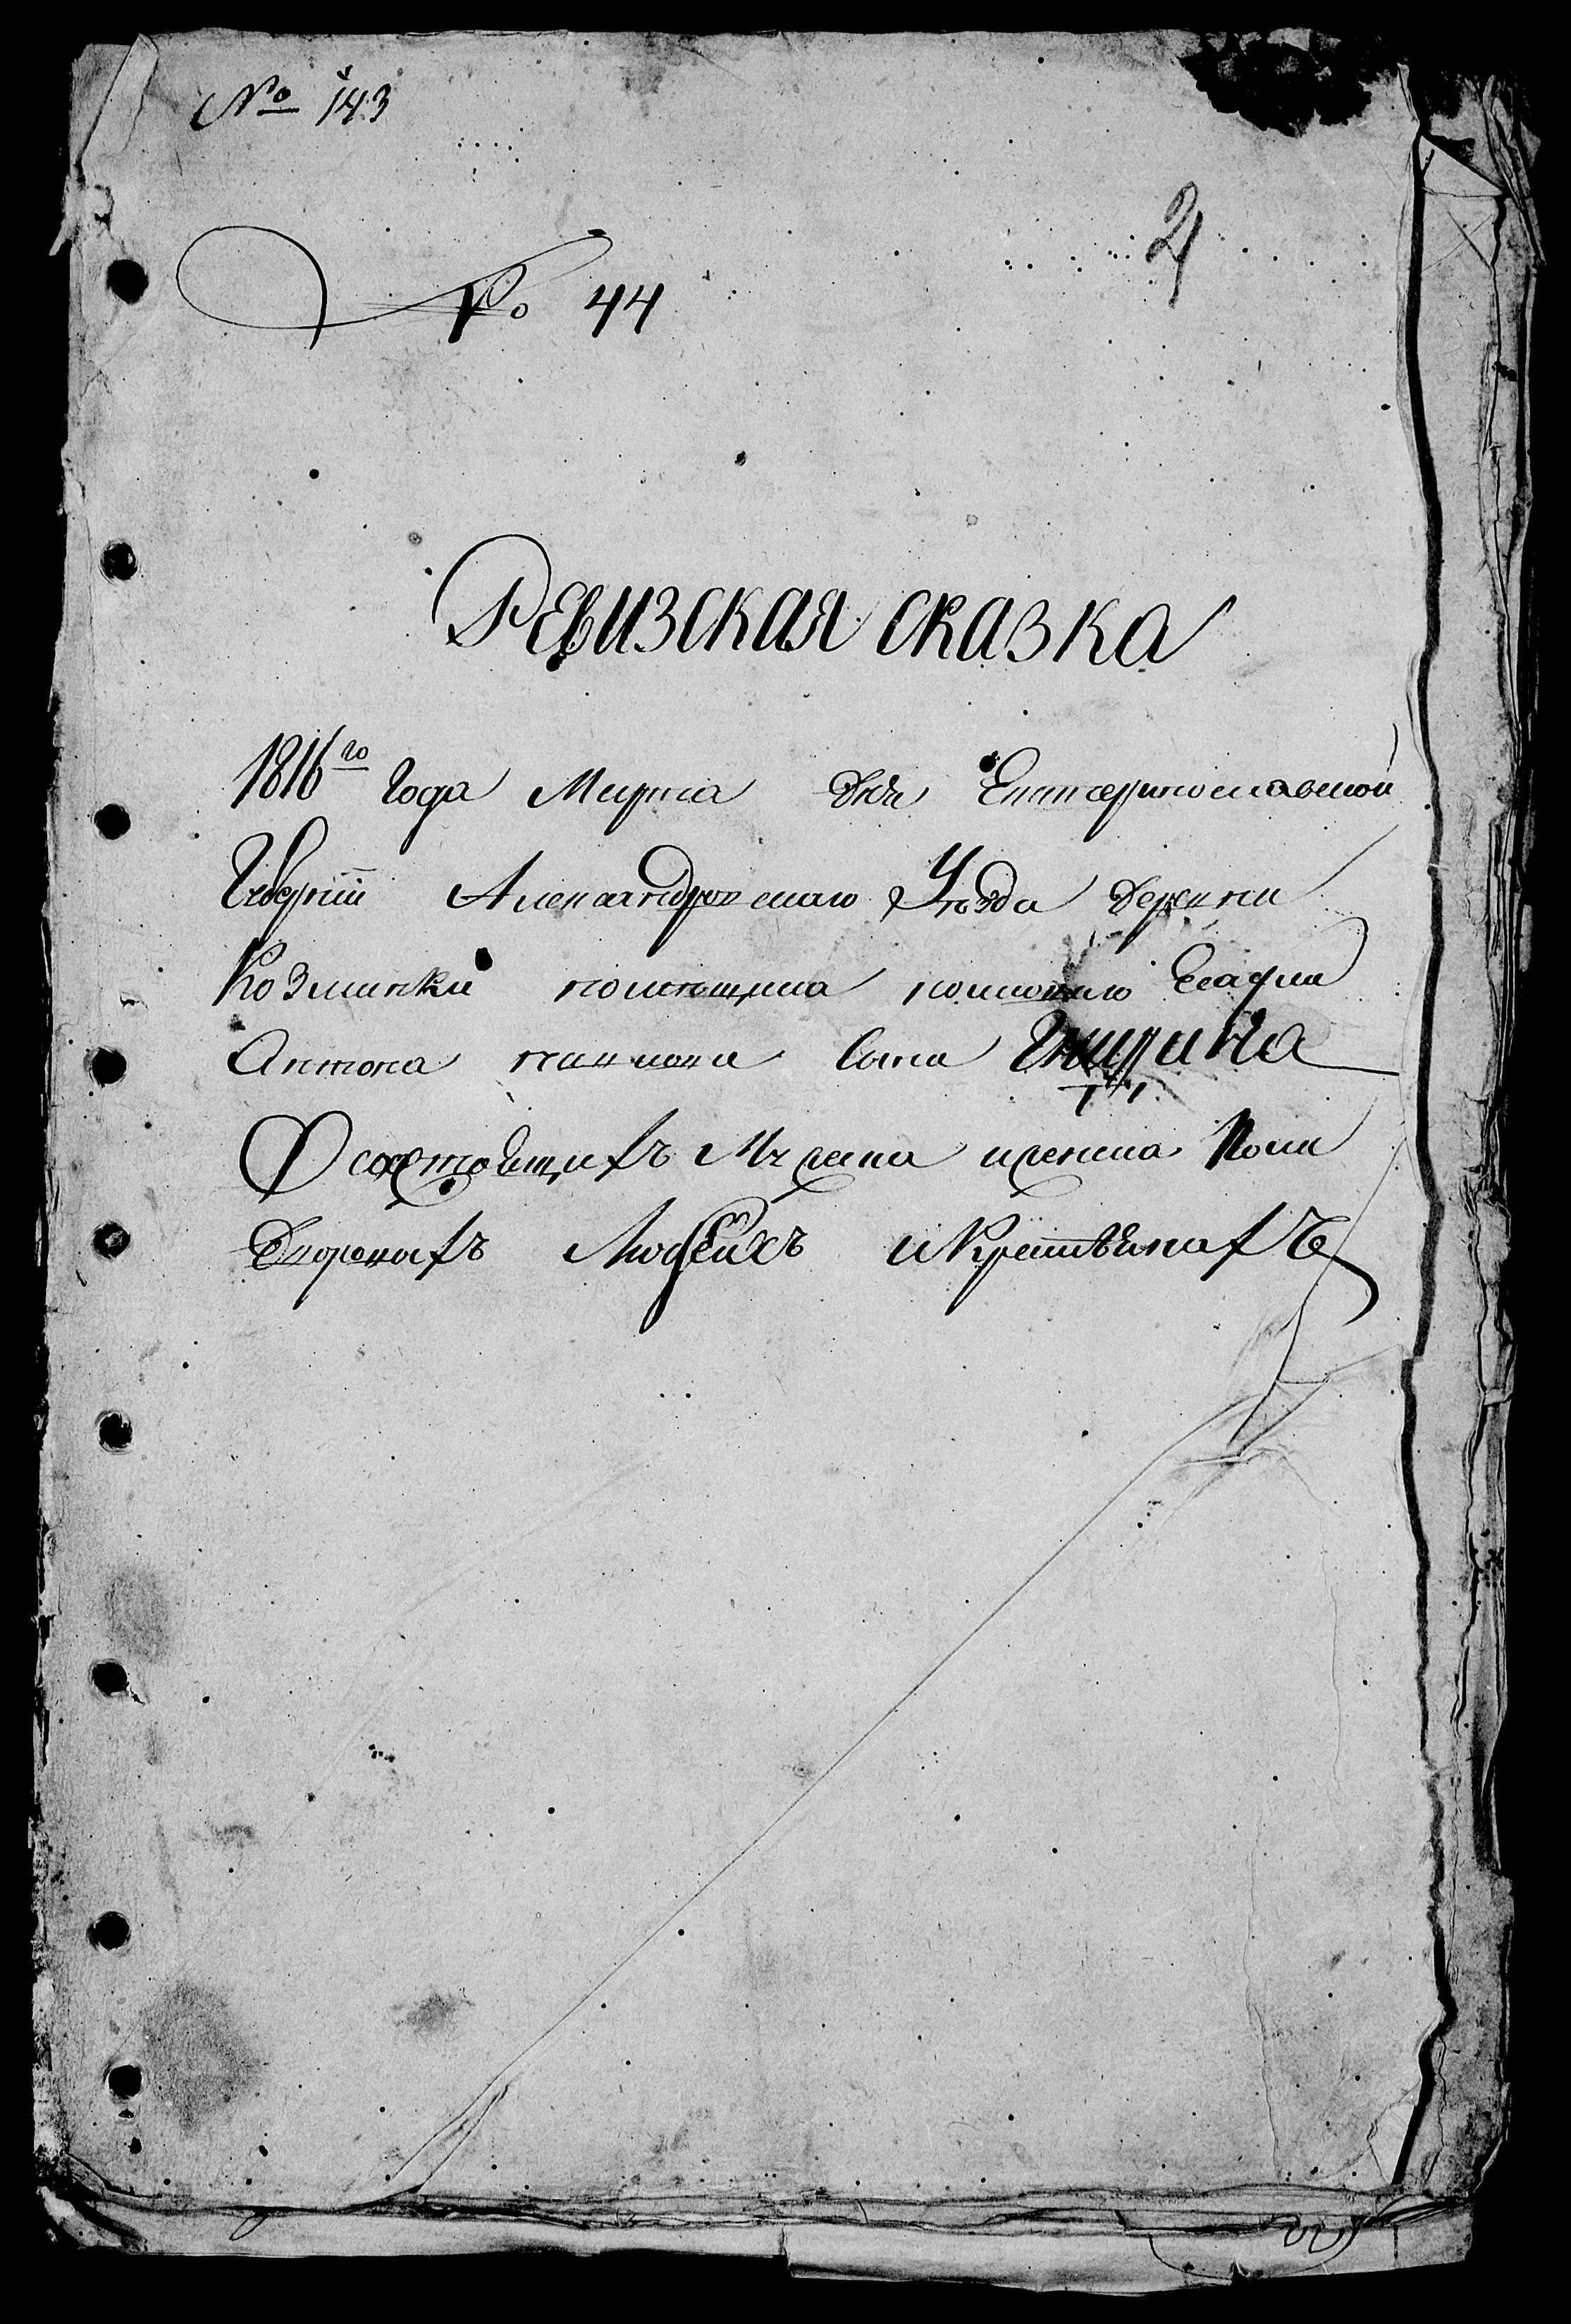 № 143
2
№ 44
Ревизская сказка
1816го Года Марта дня Екатеринославской
Губернїи Александровскаго Уезда деревни
Козминки помещика
Антона Сына
О состоящихъ Мужеска и женска Пола
Дворовыхъ Людѣй и Крестьянахъ